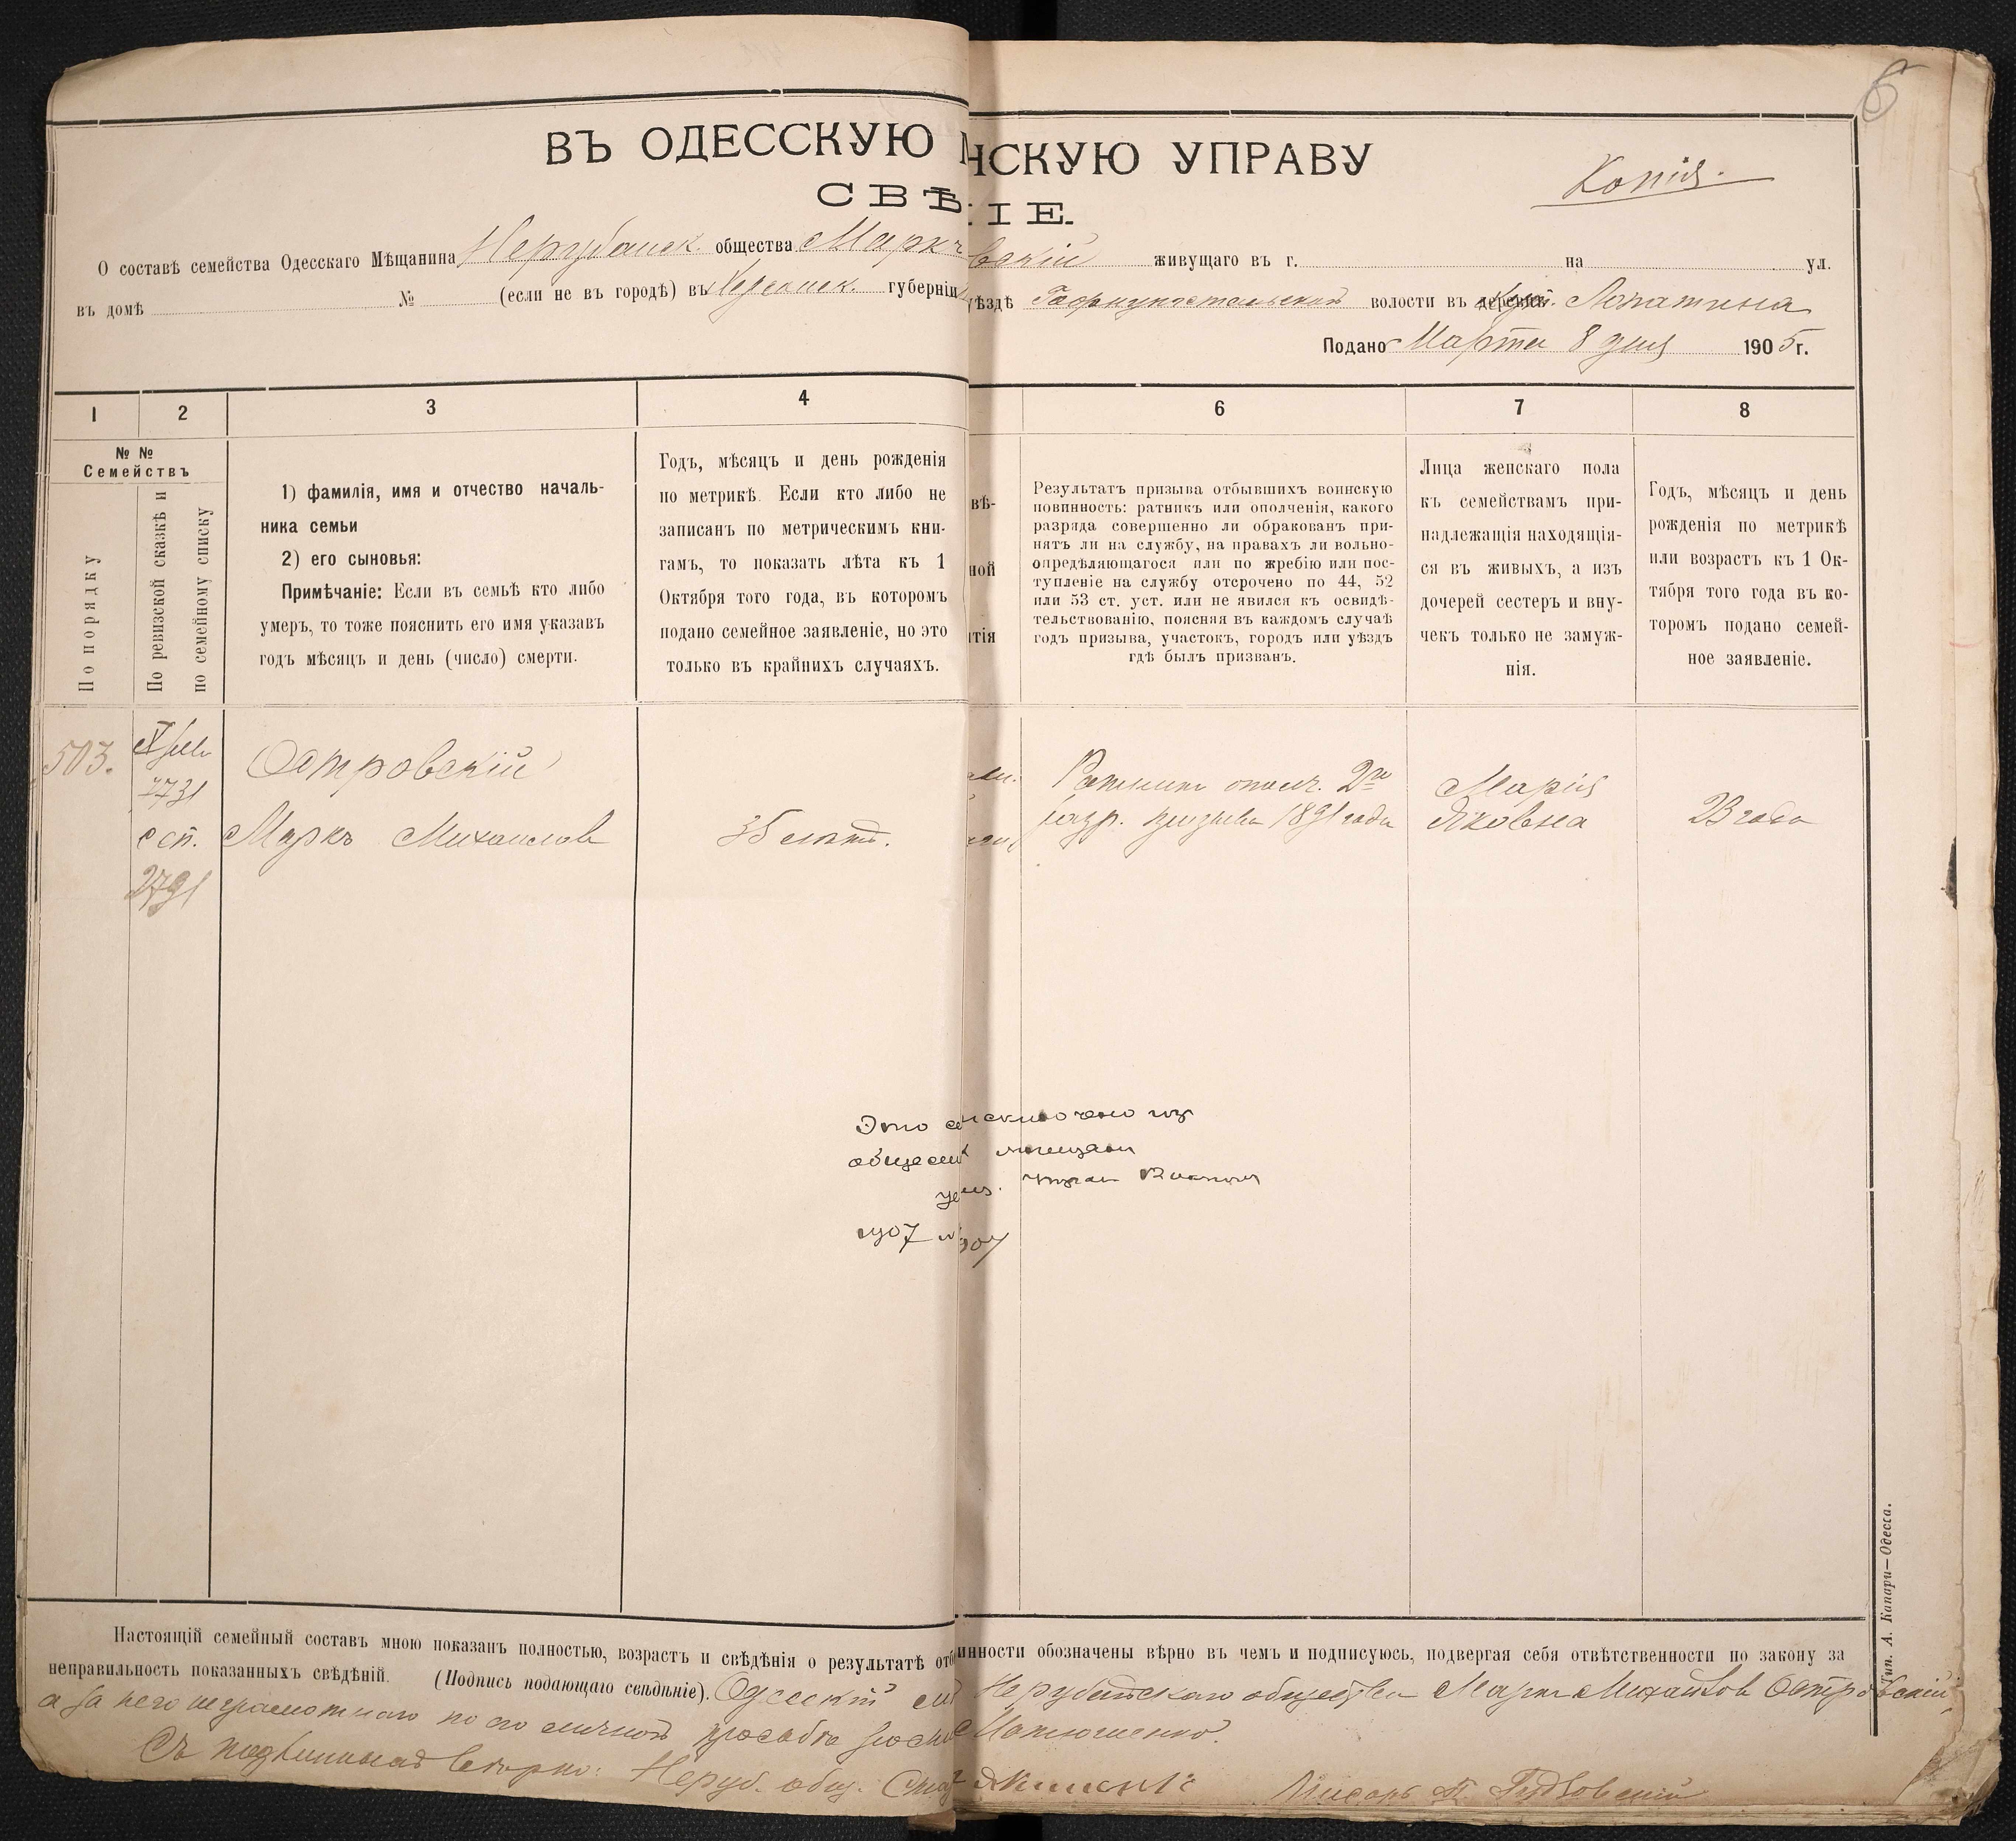 6
ВЪ ОДЕССКУЮ М НСКУЮ УПРАВУ
Копія.
СВѢ ІЕ.
О составѣ семейства Одесскаго Мѣщанина Нерубайск. общества Маркъ вскій живущаго въ г. на ул.
въ домѣ № (если не въ городѣ) въ Херсонск. губерніи уѣздѣ волости въ Лопатина
Подано Марта 8 дня 1905 г.
1 2 3 4 6 7 8
№ №
Семействъ
По порядку
По ревизской сказкѣ и
по семейному списку
1) фамилія, имя и отчество началь-
ника семьи
2) его сыновья:
Примѣчаніе: Если въ семьѣ кто либо
умеръ, то тоже пояснить его имя указавъ
годъ мѣсяцъ и день (число) смерти.
Годъ, мѣсяцъ и день рожденія
по метрикѣ. Если кто либо не
записанъ по метрическимъ кни-
гамъ, то показать лѣта къ 1
Октября того года, въ которомъ
подано семейное заявленіе, но это
только въ крайнихъ случаяхъ.
вѣ-
ной
тія
Результатъ призыва отбывшихъ воинскую
повинность: ратникъ или ополченія, какого
разряда совершенно ли обракованъ при-
нятъ ли на службу, на правахъ ли вольно-
опредѣляющагося или по жребію или пос-
тупленіе на службу отсрочено по 44, 52
или 53 ст. уст. или не явился къ освидѣ-
тельствованію, поясняя въ каждомъ случаѣ
годъ призыва, участокъ, городъ или уѣздъ
гдѣ былъ призванъ.
Лица женскаго пола
къ семействамъ при-
надлежащія находящія-
ся въ живыхъ, а изъ
дочерей сестеръ и вну-
чекъ только не замуж-
нія.
Годъ, мѣсяцъ и день
рожденія по метрикѣ
или возрастъ къ 1 Ок-
тября того года въ ко-
торомъ подано семей-
ное заявленіе.
503.
2731
с сп.
2791
Островскій
Маркъ Михайловъ
35 лѣтъ.
Ратникъ ополч. 2го
разр. призыва 1891 года
Марія
Яковна
23 года
Это исключено изъ
мещан
1907
Настоящій семейный составъ мною показанъ полностью, возрастъ и свѣдѣнія о результатѣ отб инности обозначены вѣрно въ чемъ и подписуюсь, подвергая себя отвѣтственности по закону за
неправильность показанныхъ свѣдѣній. (Подпись подающаго свѣдѣніе). Одесскій Нерубайскаго общества Маркъ Михайловъ Островскій,
а за него неграмотнаго по его личной просьбѣ
Съ подлиннымъ вѣрно: Неруб. общ. Писарь
Тип. А. Капари—Одесса.